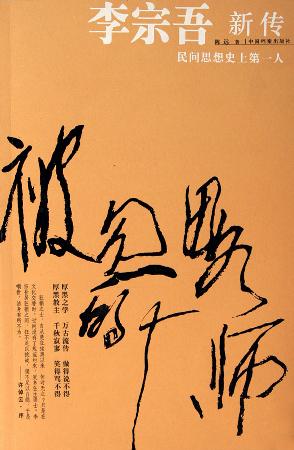 李宗吾 新传
陈远 著 | 中国档案出版社
民间思想史上第一人
被忽略的大师
厚黑之学 万古流传 做得说不得
厚黑教主 千秋寂寞 笑得骂不得
——许倬云 序